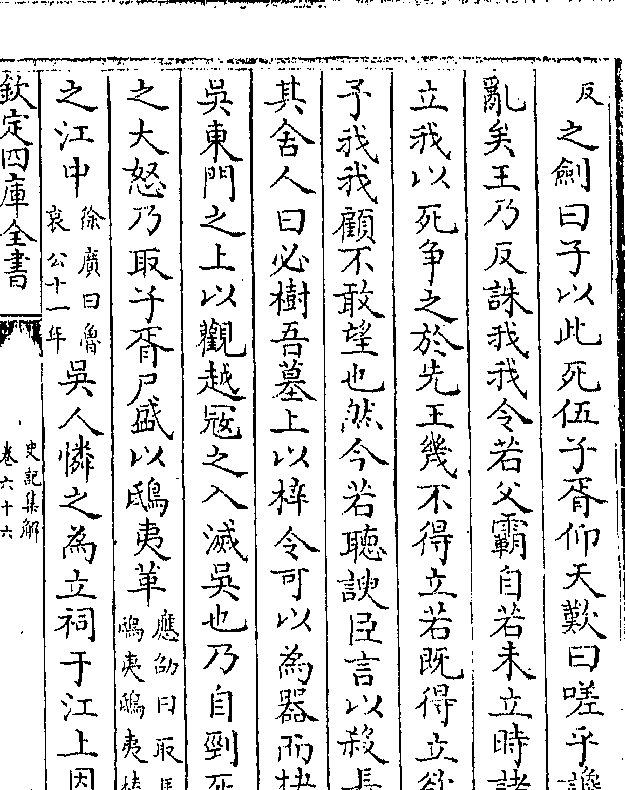 反之劍曰子以此死伍子胥仰天歎曰嗟乎讒
亂矣王乃反誅我我令若父霸自若未立時諸
立我以死争之於先王幾不得立若既得立欲
予我我顧不敢望也然今若聽諛臣言以殺長
其舍人曰必樹吾墓上以梓令可以為器而抉
吳東門之上以觀越寇之入滅吳也乃自剄死
之大怒乃取子胥尸盛以鴟夷革應劭曰取馬
鴟夷鴟夷榼
之江中徐廣曰魯
哀公十一年吳人憐之為立祠于江上因
欽定四庫全書
史記集解
卷六十六